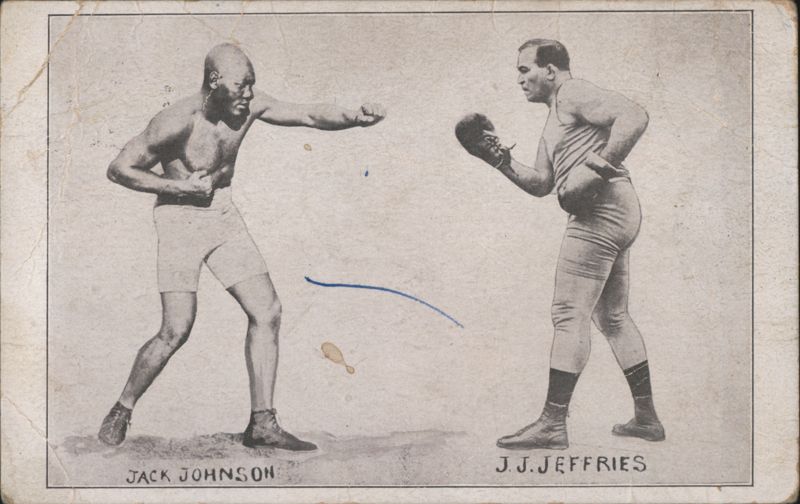 JACK JOHNSON
J. J. JEFFRIES